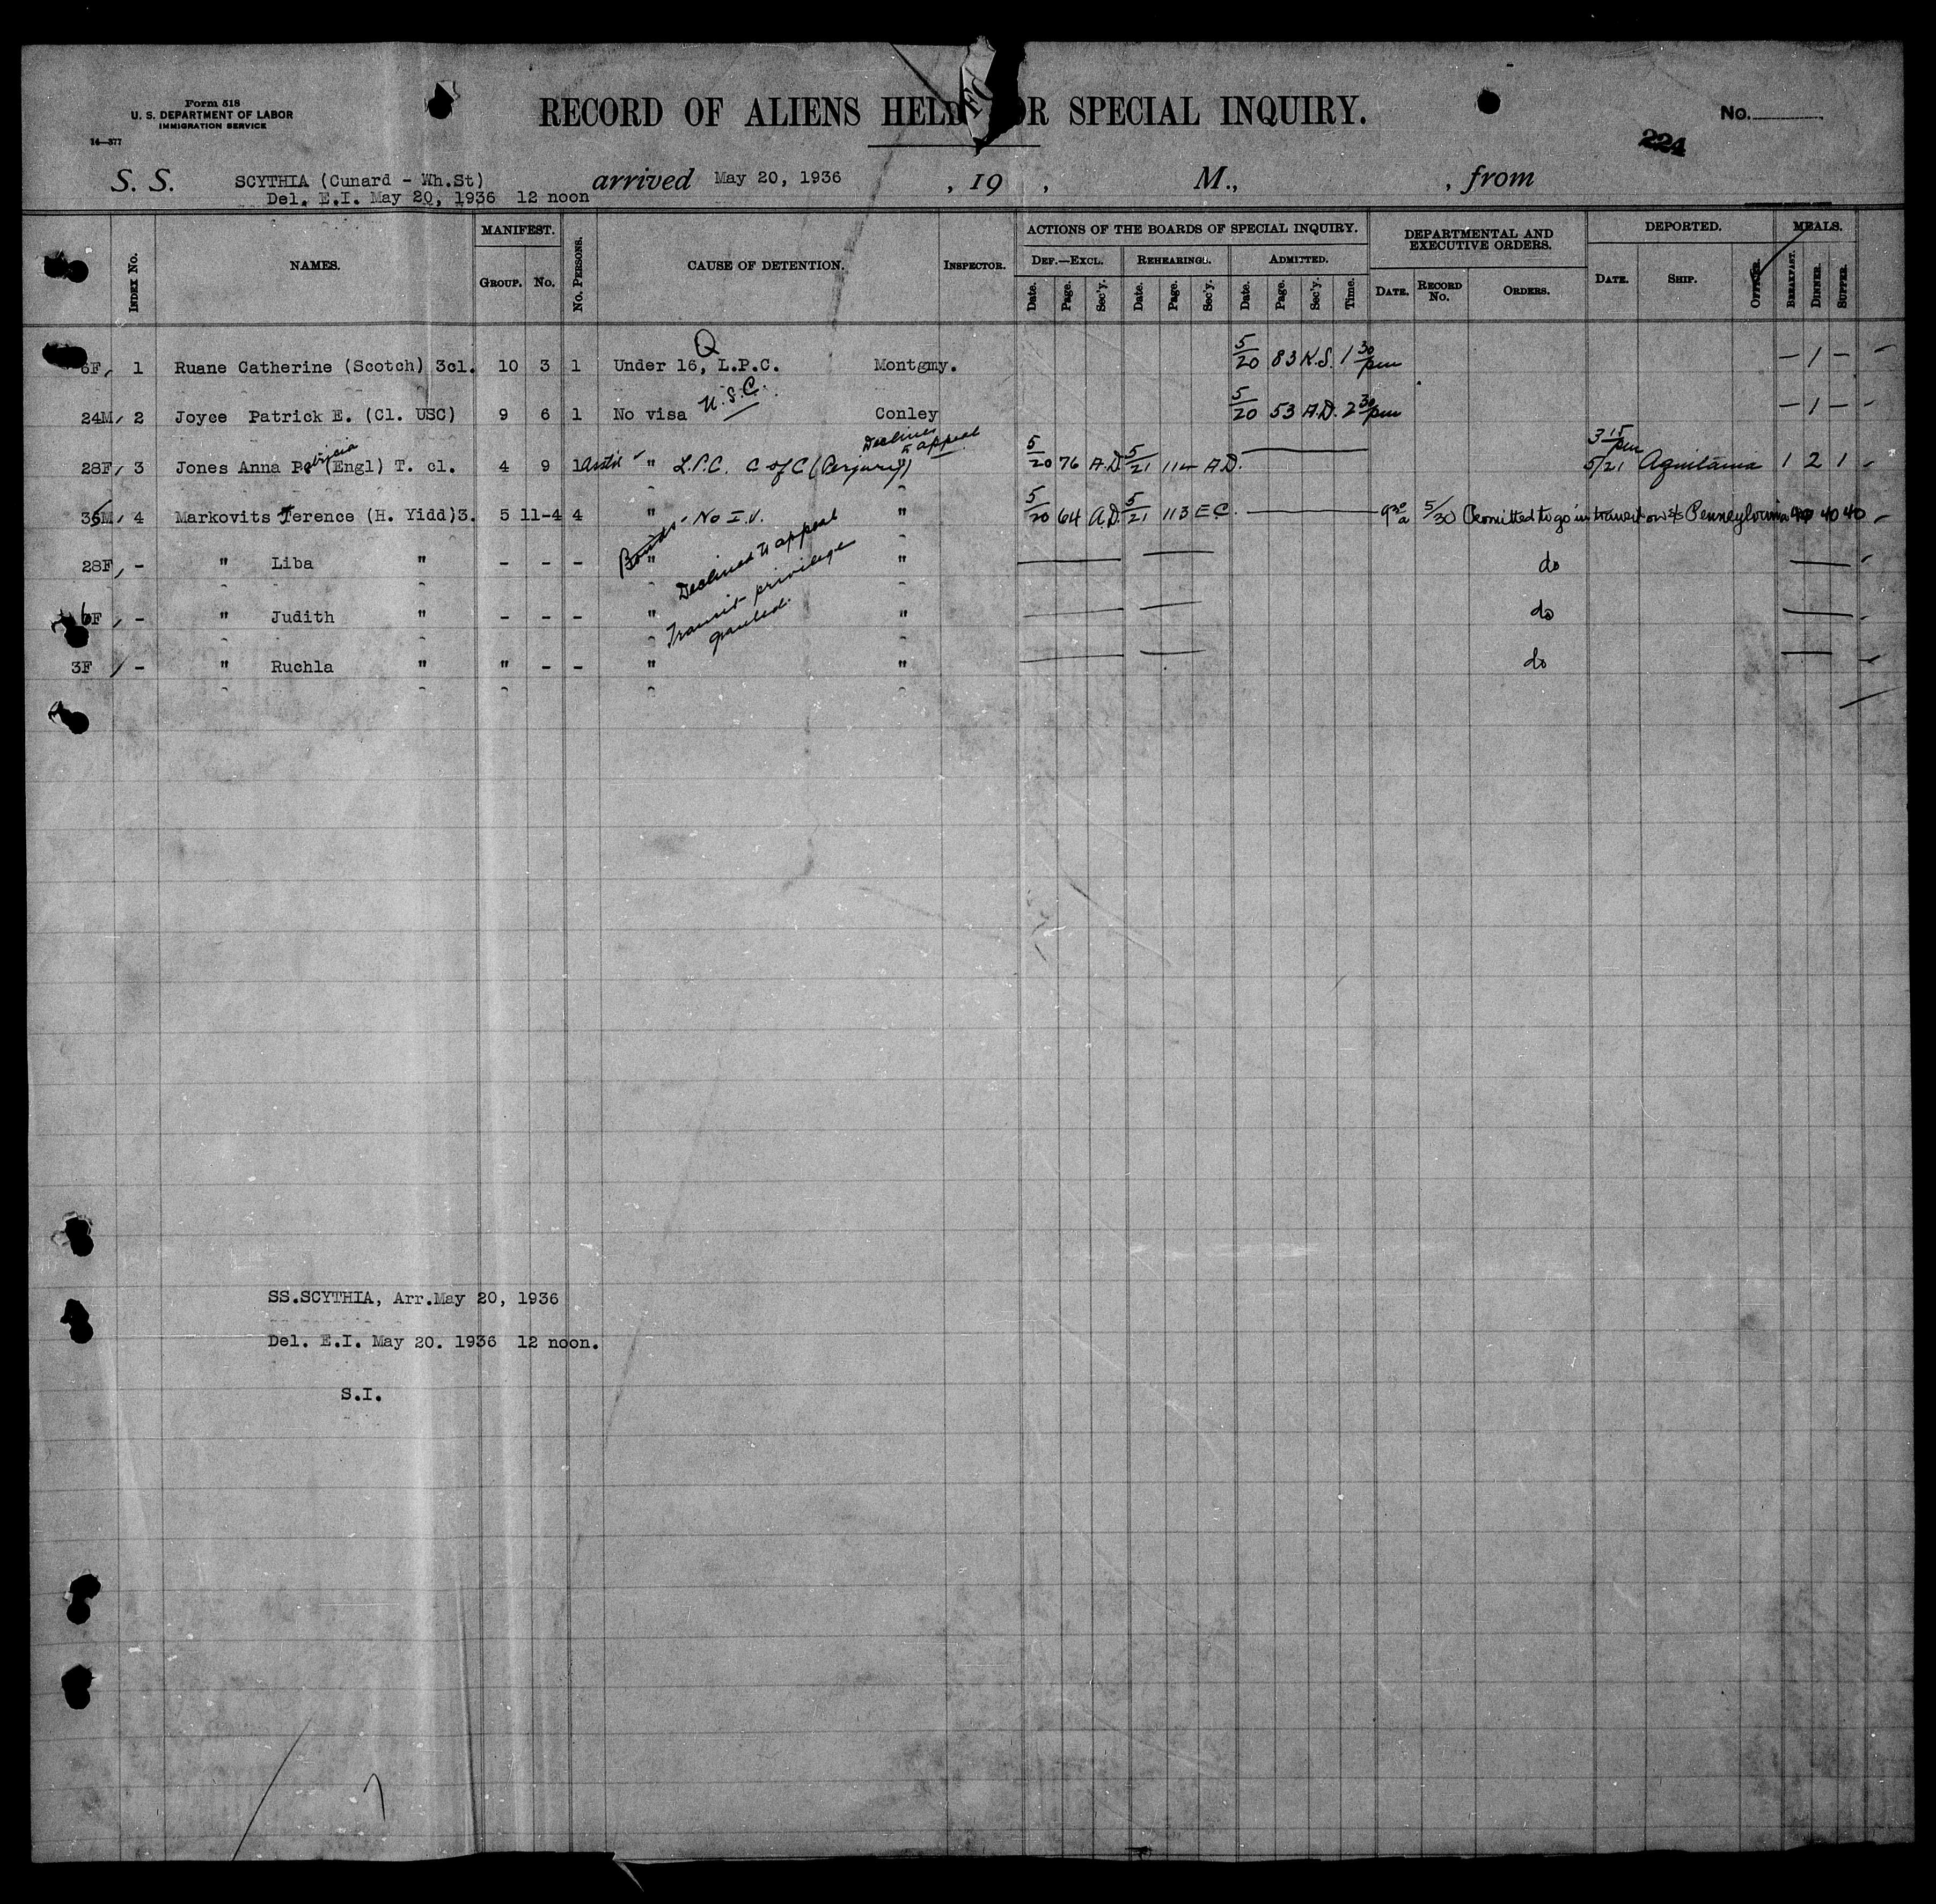 Form 518
U. S. DEPARTMENT OF LABOR
IMMIGRATION SERVICE
16—377
RECORD OF ALIENS HELD FOR SPECIAL INQUIRY.
No.
224
S. S. SCYTHIA (Cunard - Wh.St) arrived May 20, 1936 , 19 , M., , from
Del. E.I. May 20, 1936 12 noon
INDEX No. NAMES. MANIFEST. GROUP. No. No. PERSONS. CAUSE OF DETENTION. INSPECTOR. ACTIONS OF THE BOARDS OF SPECIAL INQUIRY. DEPARTMENTAL AND EXECUTIVE ORDERS. DEPORTED. MEALS.
DEF.—EXCL. REHEARINGS. ADMITTED.
Date. Page. Sec'y. Date. Page. Sec'y. Date. Page. Sec'y. Time. DATE. RECORD No. ORDERS. DATE. SHIP. OFFICER. BREAKFAST. DINNER. SUPPER.
6F, 1 Ruane Catherine (Scotch) 3cl. 10 3 1 Under 16, L.P.C. Q Montgmy. 5/20 83 K.S. 1 30 pm — 1 —
24M, 2 Joyce Patrick E. (Cl. USC) 9 6 1 No visa U.S.C. Conley 5/20 53 A.D. 2 30 pm — 1 —
28F, 3 Jones Anna Patricia (Engl) T. cl. 4 9 1 " L.P.C. C of C (Perjury) Declines to appeal " 5/20 76 A.D. 5/21 114 A.D. 3 15 pm 5/21 Aquitania 1 2 1
36M, 4 Markovits Terence (H. Yidd)3. 5 11-4 4 " No I.V. " 5/20 64 A.D. 5/21 113 E.C. 9 30 a 5/30 Permitted to go in transit on s/s Pennsylvania 40 40 40
28F, - " Liba " - - - " Declined to appeal " do
6F, - " Judith " - - - " Transit privilege granted. " do
3F, - " Ruchla " " - - " " do
SS.SCYTHIA, Arr.May 20, 1936
Del. E.I. May 20. 1936 12 noon.
S.I.